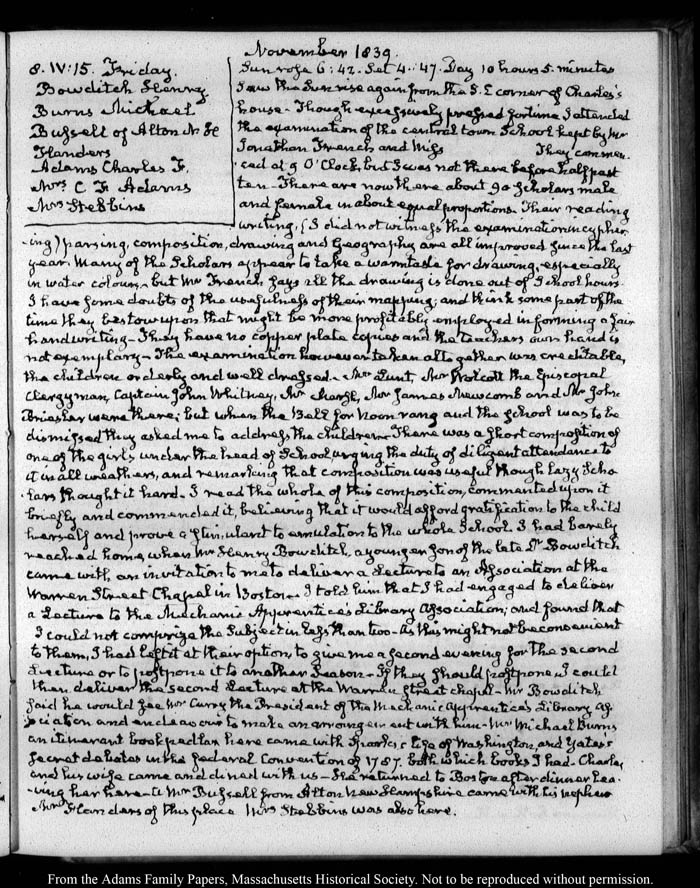 November 1839.
8. IV:15. Friday.
Bowditch Henry
Burns Michael
Bussell of Alton N. H
Flanders
Adams Charles F.
Mrs C F Adams
Mrs Stebbins
Sun rose 6:42. Set 4:47. Day 10 hours 5. minutes
Saw the Sun rise again from the S. E corner of Charles's
house—Though excessively pressed for time I attended
the examination of the central town School kept by Mr
Jonathan French, and Miss They commen-
ced at 9 O'Clock, but I was not there before half past
ten—There are now there about 90 Scholars male
and female in about equal proportions. Their reading
writing, (I did not witness the examination in cypher-
ing) parsing, composition, drawing and Geography are all improved since the last
year. Many of the Scholars appear to take a warm taste for drawing, especially
in water colours—but Mr French says all the drawing is done out of School hours
I have some doubts of the usefulness of their mapping, and think some part of the
time they bestow upon that might be more profitably employed in forming a fair
handwriting—They have no copper plate copies and the teachers own hand is
not exemplary—The examination however taken all together was creditable,
the children orderly and well dressed—Mr Lunt, Mr Wolcott the Episcopal
Clergyman, Captain John Whitney, Mr Marsh, Mr James Newcomb and Mr John
Briesler were there; but when the Bell for Noon rang and the School was to be
dismissed they asked me to address the children—There was a short composition of
one of the girls under the head of School, urging the duty of diligent attendance to
it in all weathers, and remarking that composition was useful though lazy Scho-
lars thought it hard. I read the whole of this composition, commented upon it
briefly and commended it, believing that it would afford gratification to the child
herself and prove a stimulant to emulation to the whole School. I had barely
reached home, when Mr Henry Bowditch, a younger son of the late Dr Bowditch
came with an invitation to me to deliver a Lecture to an Association at the
Warren Street Chapel in Boston—I told him that I had engaged to deliver
a Lecture to the Mechanic Apprentice's Library Association, and found that
I could not comprize the Subject in less than two—As this might not be convenient
to them, I had left it at their option, to give me a second evening for the second
Lecture or to postpone it to another Season—If they should postpone, I could
then deliver the second Lecture at the Warren Street chapel—Mr Bowditch
said he would see Mr Curry the President of the Mechanic Apprentice's Library As-
sociation and endeavour to make an arrangement with him—Mr Michael Burns
an itinerant book pedlar here came with Sparks's life of Washington, and Yates's
Secret debates in the federal Convention of 1787. both which books I had—Charles
and his wife came and dined with us—He returned to Boston after dinner lea-
ving her here—A Mr Bussell from Alton New Hampshire came with his nephew
Mr Flanders of this place Mrs Stebbins was also here.
From the Adams Family Papers, Massachusetts Historical Society. Not to be reproduced without permission.